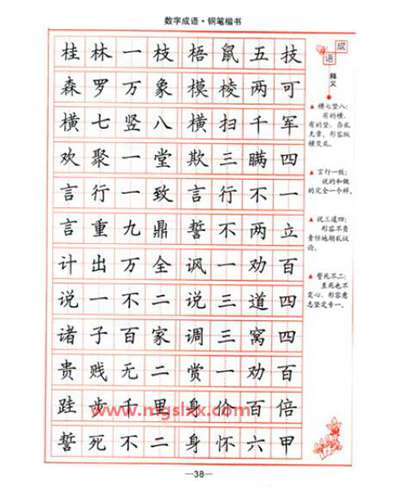 数字成语·钢笔楷书
桂林一枝 梧鼠五技
森罗万象 模棱两可
横七竖八 横扫千军
欢聚一堂 欺三瞒四
言行一致 言行不一
言重九鼎 誓不两立
计出万全 讽一劝百
说一不二 说三道四
诸子百家 调三窝四
贵贱无二 赏一劝百
跬步千里 身价百倍
誓死不二 身怀六甲
成语
释义
▲横七竖八:
有的横,
有的竖,杂乱
无章,形容纵
横交乱。
▲言行一致:
说的和做
的完全一个样。
▲说三道四:
形容不负
责任地胡乱议
论。
▲誓死不二:
至死也不
变心,形容意
志坚定专一。
www.mgslxx.com
—38—